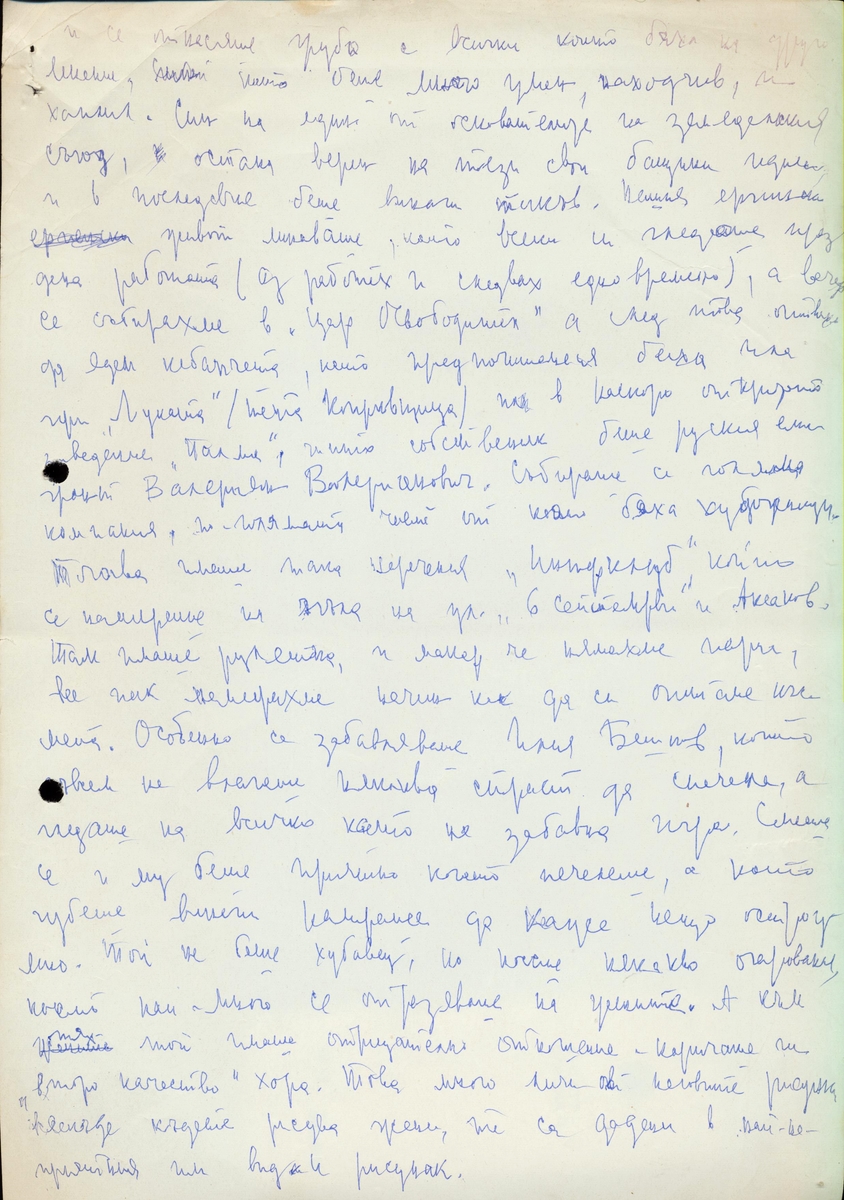 и се отнасяше грубо с всички които бяха на друго
мнение, като беше много умен, находчив, и
хаплив. Син на един от основателите на земеделския
съюз, остана верен на тези свои бащини идеи
и в последствие беше винаги такъв. Нашия ергенски
живот минаваше, като всеки си гледаше през
деня работата (аз работех и следвах едновременно), а вечер
се събирахме в „Цар Освободител" а след това отивахме
да ядем кебапчета, като предпочитания бяха или
при „Луката" / Копривщица) или в наскоро открития
заведение „Палма", чийто собственик беше руския еми-
грант Валериян Валерианович. Събираше се голяма
компания, по-голямата част от която бяха художници.
Тогава имаше така наречения „Шахклуб", който
се намираше на ъгъла на ул. „6 септември" и Аксаков.
Там имаше рулетка, и макар че нямахме пари,
все пак намирахме начин как да си опитаме къс-
мета. Особено се забавляваше Илия Бешков, който
съвсем не влагаше някаква страст да спечели, а
гледаше на всичко като на забавна игра. Смееше
се и му беше приятно когато печелеше, а когато
губеше винаги намираше да каже нещо остроу-
мно. Той не беше хубавец, но носеше някакво очарование,
което най-много се отразяваше на жените. А към
тях той имаше отрицателно отношение - наричаше ги
„второ качество" хора. Това много личи от неговите рисунки
където рисува жени, те са дадени в най-не-
приятния им вид и рисунък.